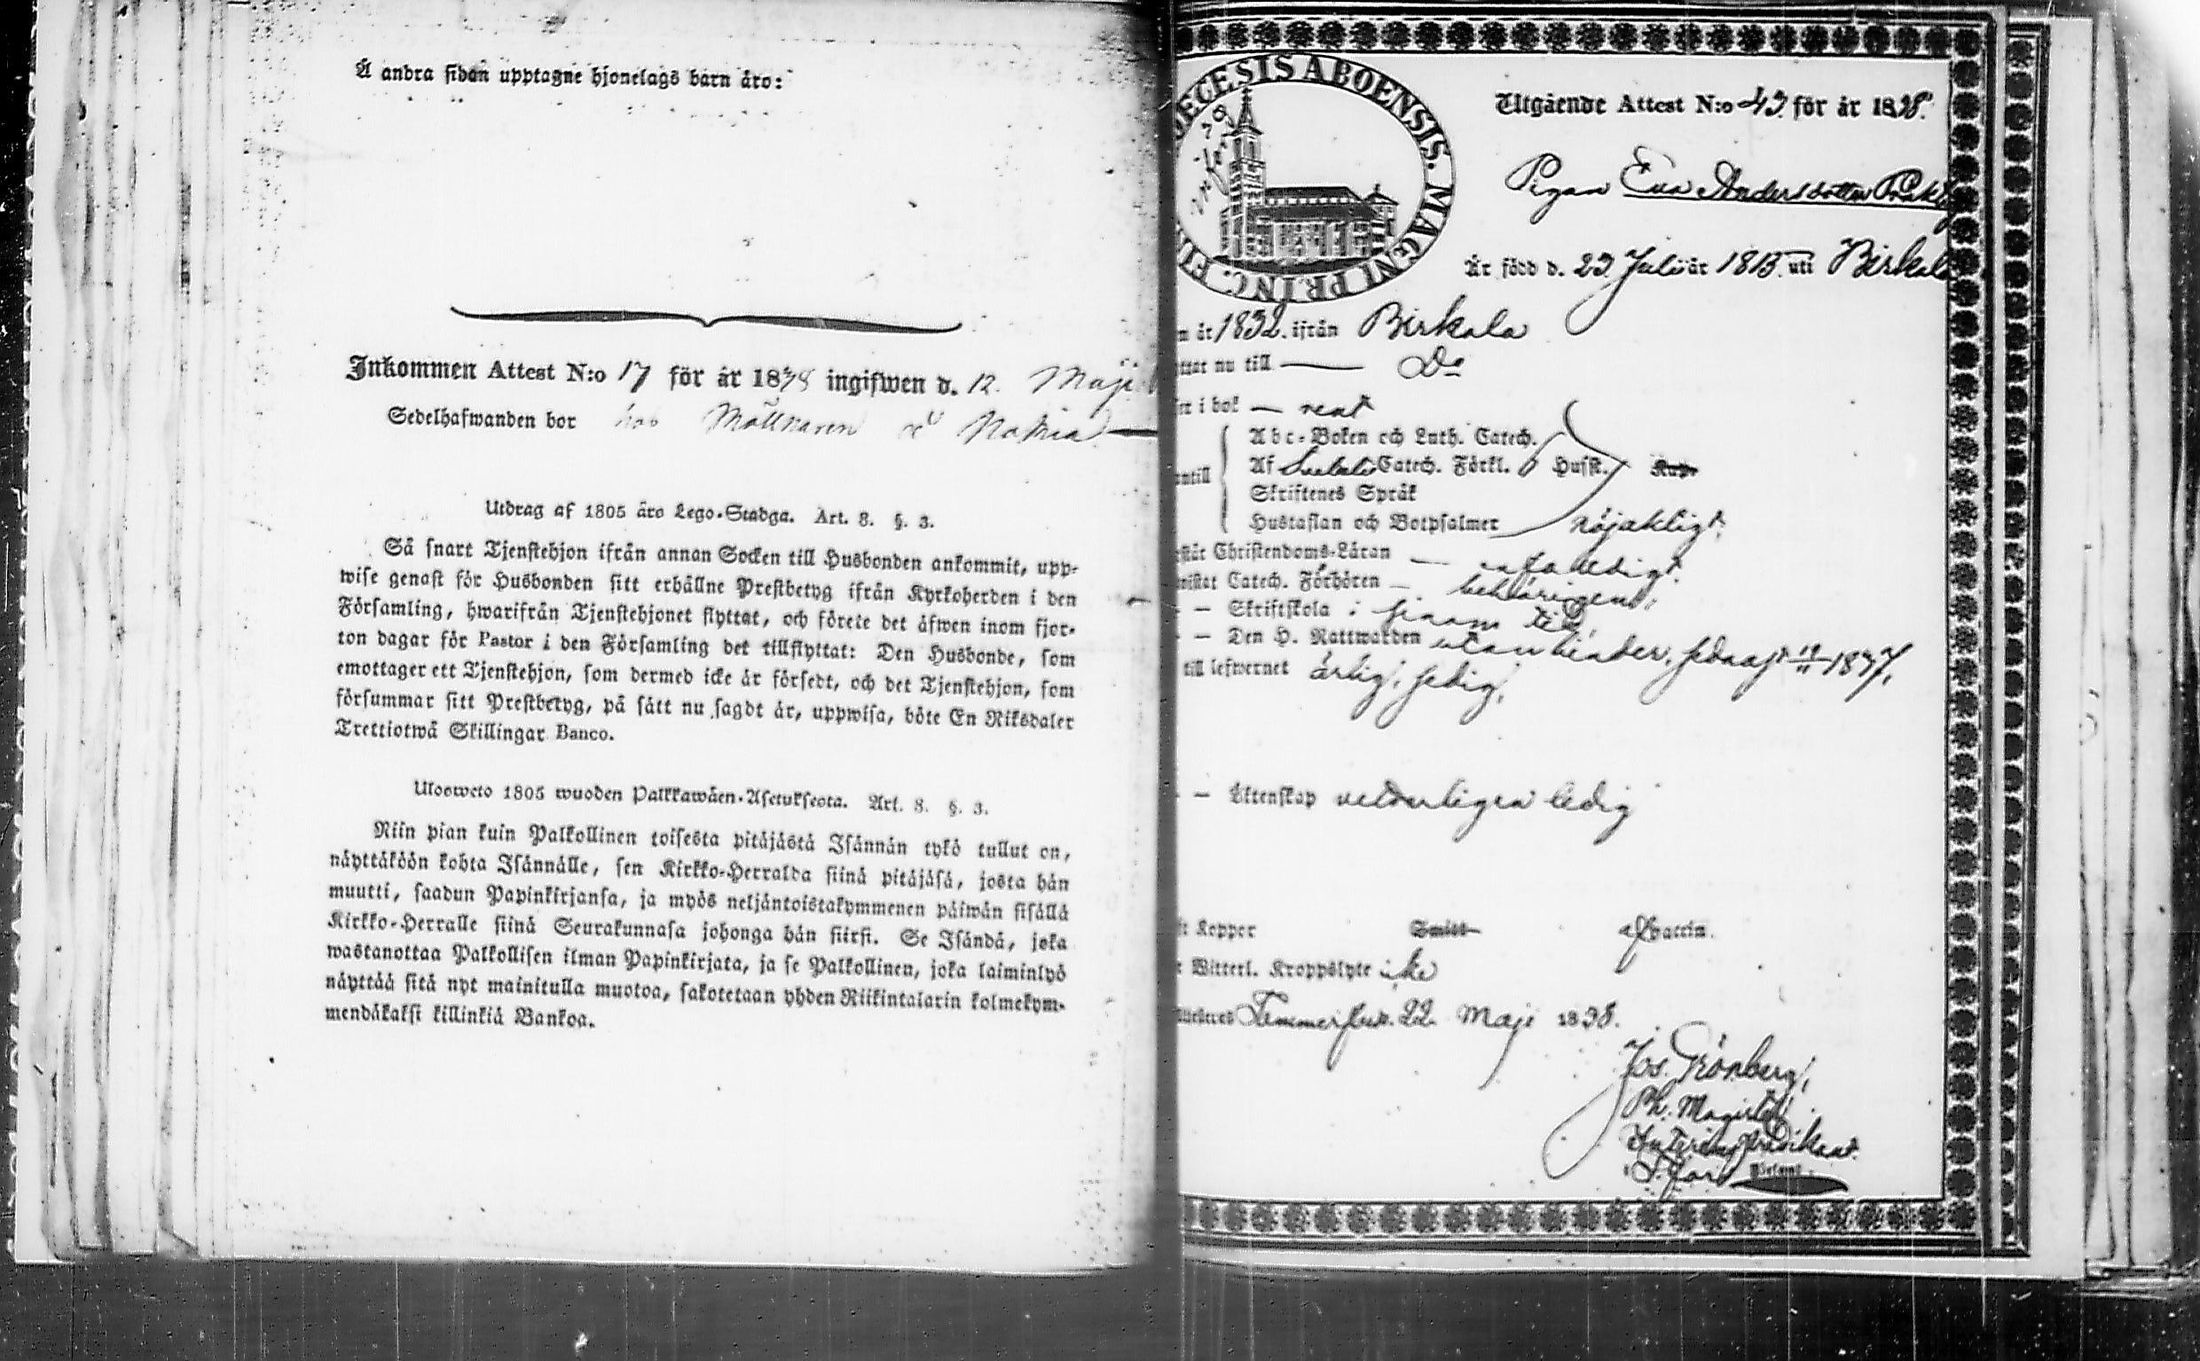 Å andra sidan upptagne hjonelags barn äro:
Inkommen Attest N:o 17 för år 1838 ingifwen d. 12. Maji
Sedelhafwanden bor hos Möllnaren
Utdrag af 1805 års Lego-Stadga. Art. 8. §. 3.
Så snart Tjenstehjon ifrån annan Socken till Husbonden ankommit, upp-
wise genast för Husbonden sitt erhållne Prestbetyg ifrån Kyrkoherden i den
Församling, hwarifrån Tjenstehjonet flyttat, och förete det äfwen inom fjor-
ton dagar för Pastor i den Församling det tillflyttat: Den Husbonde, som
emottager ett Tjenstehjon, som dermed icke är försedt, och det Tjenstehjon, som
försummar sitt Prestbetyg, på sätt nu sagdt är, uppwisa, böte En Riksdaler
Trettiotwå Skillingar Banco.
Ulosweto 1805 wuoden Palkkawäen-Asetuksesta. Art. 8. §. 3.
Niin pian kuin Palkollinen toisesta pitäjästä Isännän tykö tullut on,
näyttäköön kohta Isännälle, sen Kirkko-Herralda siinä pitäjäsä, josta hän
muutti, saadun Papinkirjansa, ja myös neljäntoistakymmenen päiwän sisällä
Kirkko-Herralle siinä Seurakunnasa johonga hän siirsi. Se Isändä, joka
wastanottaa Palkollisen ilman Papinkirjata, ja se Palkollinen, joka laiminlyö
näyttää sitä nyt mainitulla muotoa, sakotetaan yhden Riikintalarin kolmekym-
mendäkaksi killinkiä Bankoa.
DECESIS ABOENSIS. MAGNI PRINC. FI
Utgående Attest N:o 43 för år 1838.
Pigan Eva Andersdotter
Är född d. 23 Juli år 1813. uti Birkala
år 1832. ifrån Birkala
ttar nu till — Do
i bok — rent
Abc-Boken och Luth. Catech.
Af Catech. Förkl. Husst.
Skriftenes Språk
Hustaflan och Botpsalmer nöjaktigt.
Christendoms-Läran —
Catech. Förhören — behörigen
— Skriftskola i sinom tid
— Den H. Nattwarden utan hinder, sednast 19/11 1837,
till lefwernet ärlig, sedig,
— Äktenskap veterligen ledig
Koppor Smitt af Vaccin.
Witterl. Kroppslyte icke
Tammerfors. 22 Maji 1838.
Jos. Grönberg,
Ph. Magister